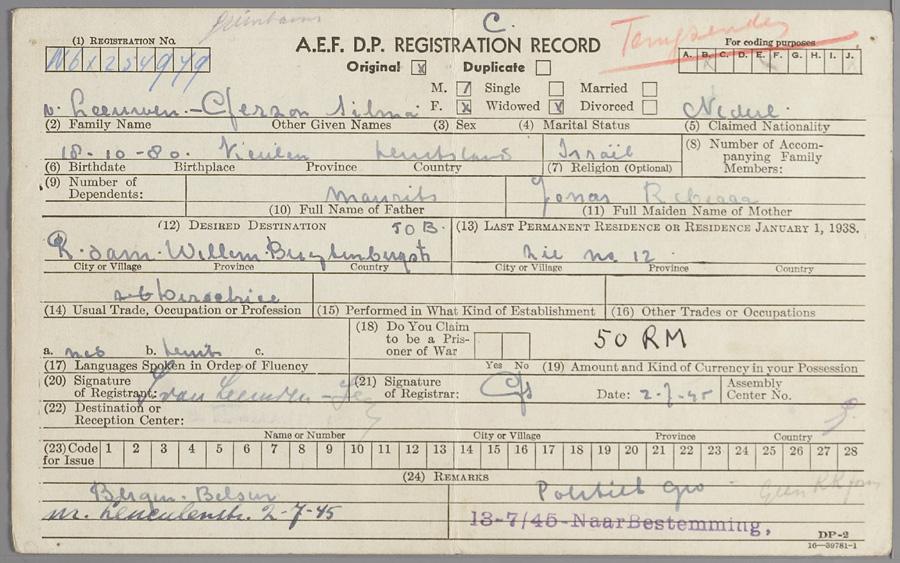 C.
(1) REGISTRATION NO.
A.E.F. D.P. REGISTRATION RECORD
For coding purposes
A. B. C. D. E. F. G. H. I. J.
Original x Duplicate
M. Single Married
F. x Widowed x Divorced
v. Leeuwen - Gerzon Silma Nederl.
(2) Family Name Other Given Names (3) Sex (4) Marital Status (5) Claimed Nationality
18-10-80. Israël
(6) Birthdate Birthplace Province Country (7) Religion (Optional)
(8) Number of Accompanying Family Members:
(9) Number of Dependents:
Maurits Jonas Rebecca
(10) Full Name of Father (11) Full Maiden Name of Mother
(12) DESIRED DESTINATION 50B. (13) LAST PERMANENT RESIDENCE OR RESIDENCE JANUARY 1, 1938.
R-dam. Willem. zie no 12
City or Village Province Country City or Village Province Country
(14) Usual Trade, Occupation or Profession (15) Performed in What Kind of Establishment (16) Other Trades or Occupations
(18) Do You Claim to be a Prisoner of War
50 RM
a. b. c.
Yes No
(17) Languages Spoken in Order of Fluency (19) Amount and Kind of Currency in your Possession
(20) Signature of Registrant: van Leeuwen (21) Signature of Registrar: Date: 2-7-45 Assembly Center No.
(22) Destination or Reception Center:
Name or Number City or Village Province Country
(23) Code for Issue 1 2 3 4 5 6 7 8 9 10 11 12 13 14 15 16 17 18 19 20 21 22 23 24 25 26 27 28
(24) REMARKS
Bergen-Belsen
2-7-45
13-7/45-NaarBestemming,
DP-2
16—39781-1